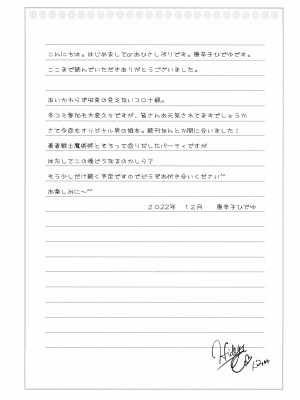 こんにちは。はじめましてorおひさしぶりです。唐辛子ひでゆです。
ここまで読んでいただきありがとうございました。
あいかわらず収束の見えないコロナ禍。
冬コミ参加も大変久々ですが、皆さんお元気されてますでしょうか
さて今回もオリジナル男の娘本。続刊なんとか間に合いました！
勇者戦士魔術師とそろって回りだしたパーティですが
はたしてこの後どうなるのかしら？
もう少しだけ続く予定ですのでどうぞお付き合いください〜
お楽しみに〜〜
２０２２年　１２月　唐辛子ひでゆ